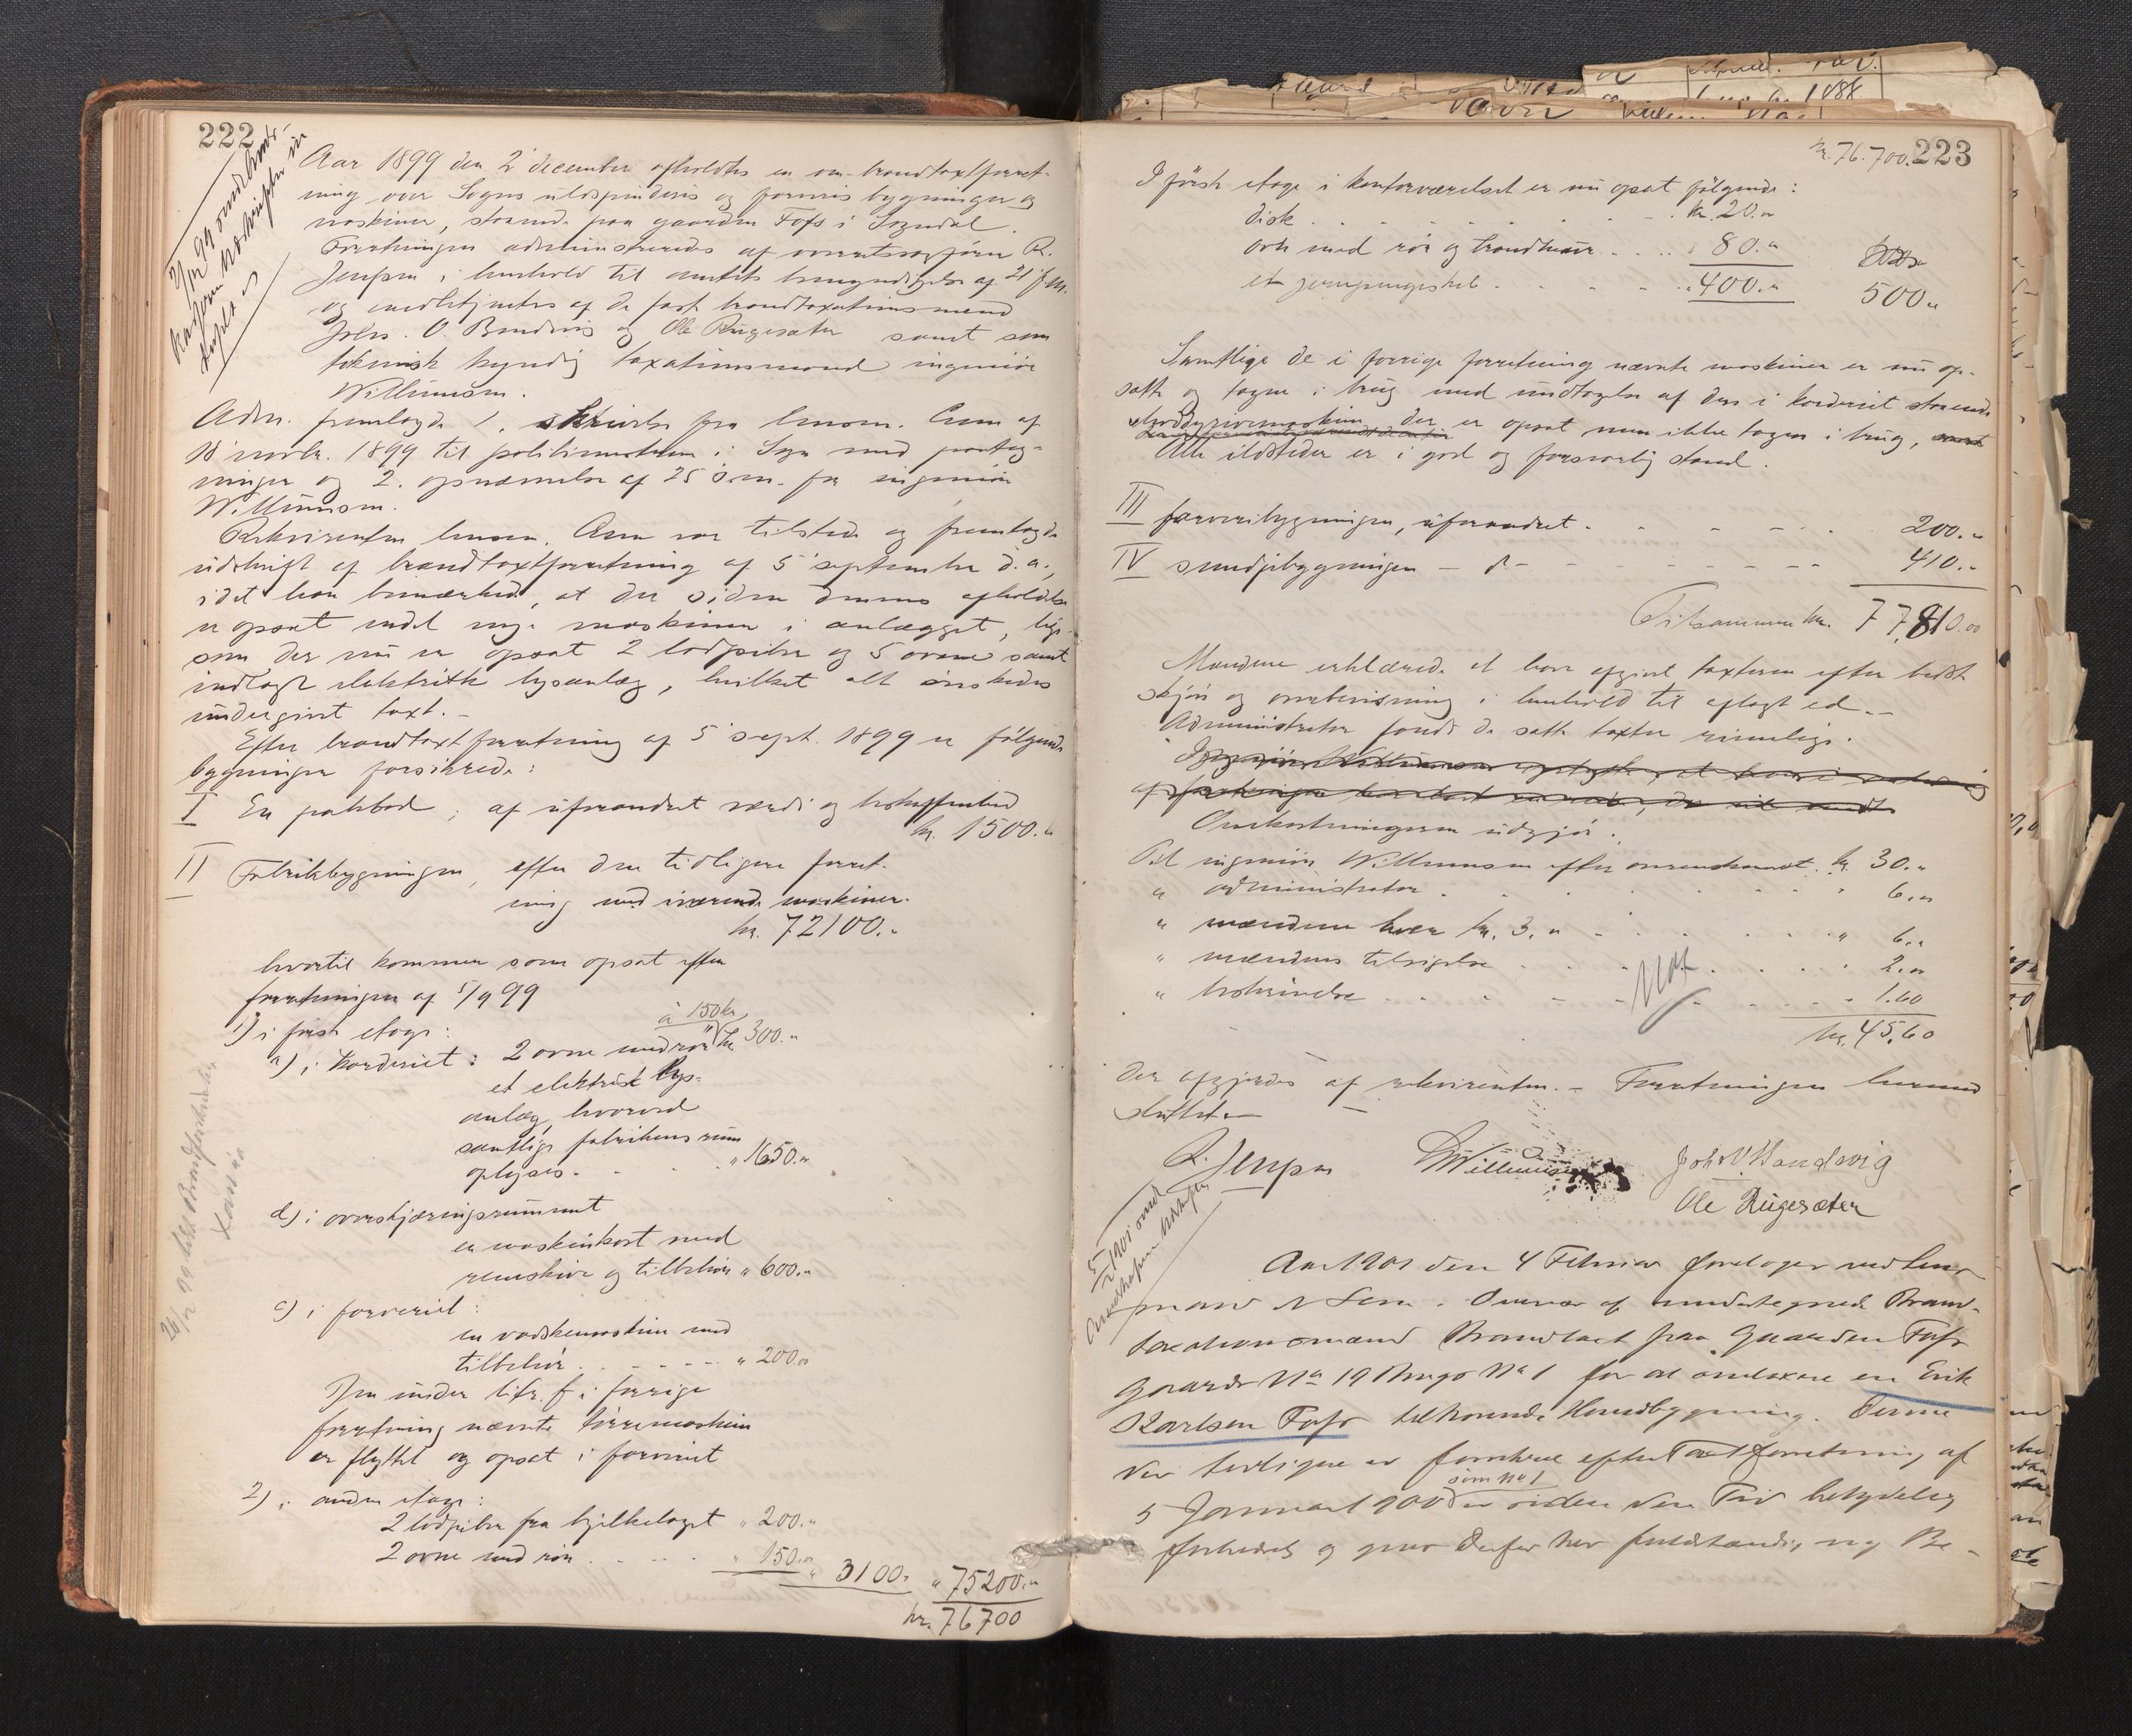 222
2/12 99 omd. brands-
kassen udskriften
Aar 1899 den 2 december afholdtes en om-brandtaxtforret-
ning over Sogns uldspinderis og farveris bygninger og
maskiner, staaende paa gaarden Foss i Sogndal.
Forretningen administreredes af overretssagfører R.
Jenssen i henhold til amtets bemyndigelse af 21 f.m.
og medbetjentes af de faste brandtaxationsmænd
Johs. O. Bondevig og Ole Rugesæter samt som
teknisk kyndig taxationsmand ingeniør
Willumsen.
Adm. fremlagde 1. skrivelse fra lensm. Lem af
18 novbr. 1899 til politimesteren i Sogn med paateg-
ninger og 2. opnævnelse af 25 s.m. for ingeniør
Willumsen.
Rekvirenten lensm. Lem var tilstede og fremlagde
udskrift af brandtaxtforretning af 5 september d.a.,
idet han bemærkede, at der siden dennes afholdelse
er opsat endel nye maskiner i anlægget, lige-
som der nu er opsat 2 lodpiber og 5 ovne samt
indlagt elektrisk lysanlæg, hvilket alt ønskedes
undergivet taxt.-
Efter brandtaxtforretning af 5 sept. 1899 er følgende
bygninger forsikrede:
I En pakbod, af uforandret værdi og beskaffenhed
kr. 1500.-
II Fabrikbygningen, efter den tidligere forret-
ning med iværende maskiner.
kr. 72100.-
hvortil kommer som opsat efter
forretningen af 5/9 99
1) i første etage:
à 150 kr
a) i karderiet: 2 ovne med rør kr. 300.-
et elektrisk lys-
anlæg, hvorved
samtlige fabrikens rum
oplyses. " 1650.-
b) i overskjæringsrummet
en maskinkost med
remskive og tilbehør " 600.-
c) i farveriet:
en vadskemaskin med
tilbehør . . . " 200.-
Den under litr. f i forrige
forretning nævnte tørremaskin
er flyttet og opsat i farveriet
2) i anden etage:
2 lodpiber fra bjelkelaget " 200.-
2 ovne med rør . . . " 150.- " 3100.- " 75200.-
kr. 76700
26/2 00
kr. 76.700. 223
I første etage i kontorværelset er nu opsat følgende:
disk . . . kr. 20.-
ovn med rør og brandmur . . . " 80.-
et jernpengeskab . . . " 400.- 500.-
Samtlige de i forrige forretning nævnte maskiner er nu op-
satte og tagne i brug med undtagelse af den i karderiet staaende
der er opsat men ikke tagen i brug,
Alle ildsteder er i god og forsvarlig stand.
III farveribygningen, uforandret . . . 200.-
IV smedjebygningen – d – . . . 410.-
Tilsammen kr. 77,810.00
Mændene erklærede at have afgivet taxterne efter bedste
skjøn og overbevisning i henhold til aflagt ed.-
Administrator fandt de satte taxter rimelige.
Omkostningerne udgjør:
Til ingeniør Willumsen efter overenskomst . kr. 30.-
" administrator . . . " 6.-
" mændene hver kr. 3.- . . . " 6.-
" mændenes tilsigelse . . . " 2.-
" beskrivelse . . . 1.60
kr. 45,60
der afgjordes af rekvirenten.- Forretningen hermed
sluttet.-
R. Jenssen Willumsen Joh O Bondevig
Ole Rugesæter
Aar 1901 den 4 Februar foretoges ved Lens-
mand N Lem. Overvær af undertegnede Brand-
taxationsmænd Brandtaxt paa Gaarden Foss
Gaards No 19 Brugs No 1 for at omtaxere en Erik
Karlsen Foss tilhørende Hovedbygning. Denne
der tidligere er forsikret efter Taxtforretning af
som No 1
5 Januar 1900 er siden den Tid betydelig
forbedret og gives derfor her fuldstændig ny Be-